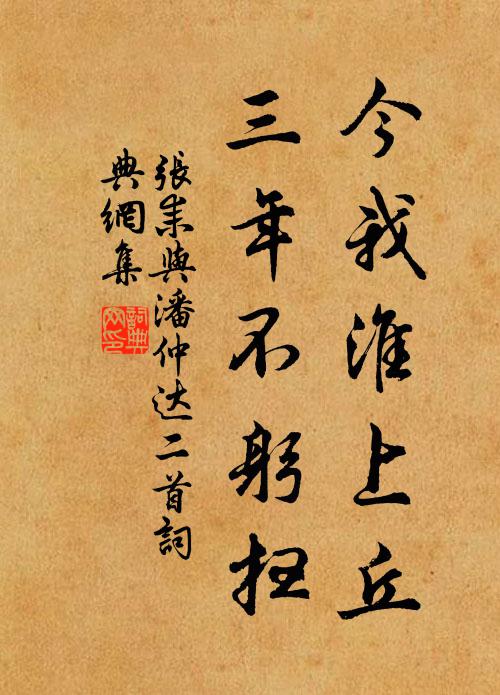 今我淮上丘
三年不躬扫
張耒與潘仲达二首詞
典網集
詞典
网印